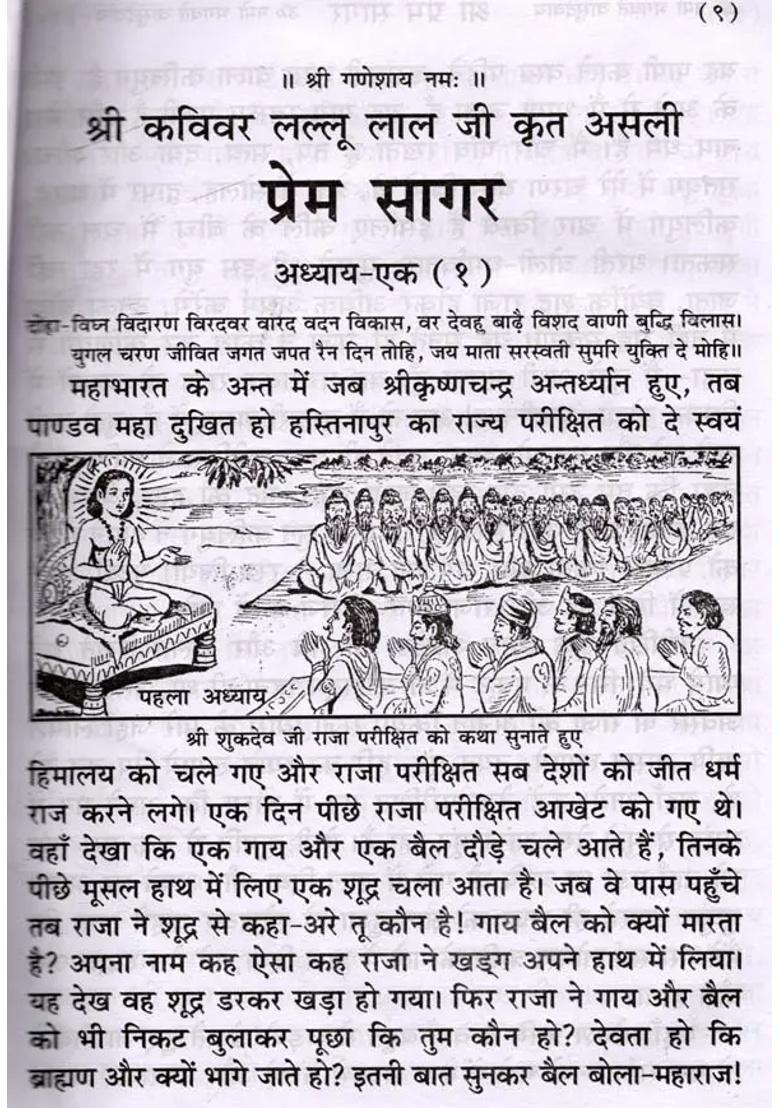 (९)
॥ श्री गणेशाय नमः ॥
श्री कविवर लल्लू लाल जी कृत असली
प्रेम सागर
अध्याय-एक (१)
दोहा-विघ्न विदारण विरदवर वारेद वदन विकास, वर देवहु बाढ़ै विशद वाणी बुद्धि विलास।
युगल चरण जीवित जगत जपत रैन दिन तोहि, जय माता सरस्वती सुमरि युक्ति दे मोहि॥
महाभारत के अन्त में जब श्रीकृष्णचन्द्र अन्तर्ध्यान हुए, तब
पाण्डव महा दुखित हो हस्तिनापुर का राज्य परीक्षित को दे स्वयं
पहला अध्याय
श्री शुकदेव जी राजा परीक्षित को कथा सुनाते हुए
हिमालय को चले गए और राजा परीक्षित सब देशों को जीत धर्म
राज करने लगे। एक दिन पीछे राजा परीक्षित आखेट को गए थे।
वहाँ देखा कि एक गाय और एक बैल दौड़े चले आते हैं, तिनके
पीछे मूसल हाथ में लिए एक शूद्र चला आता है। जब वे पास पहुँचे
तब राजा ने शूद्र से कहा-अरे तू कौन है! गाय बैल को क्यों मारता
है? अपना नाम कह ऐसा कह राजा ने खड्ग अपने हाथ में लिया।
यह देख वह शूद्र डरकर खड़ा हो गया। फिर राजा ने गाय और बैल
को भी निकट बुलाकर पूछा कि तुम कौन हो? देवता हो कि
ब्राह्मण और क्यों भागे जाते हो? इतनी बात सुनकर बैल बोला-महाराज!